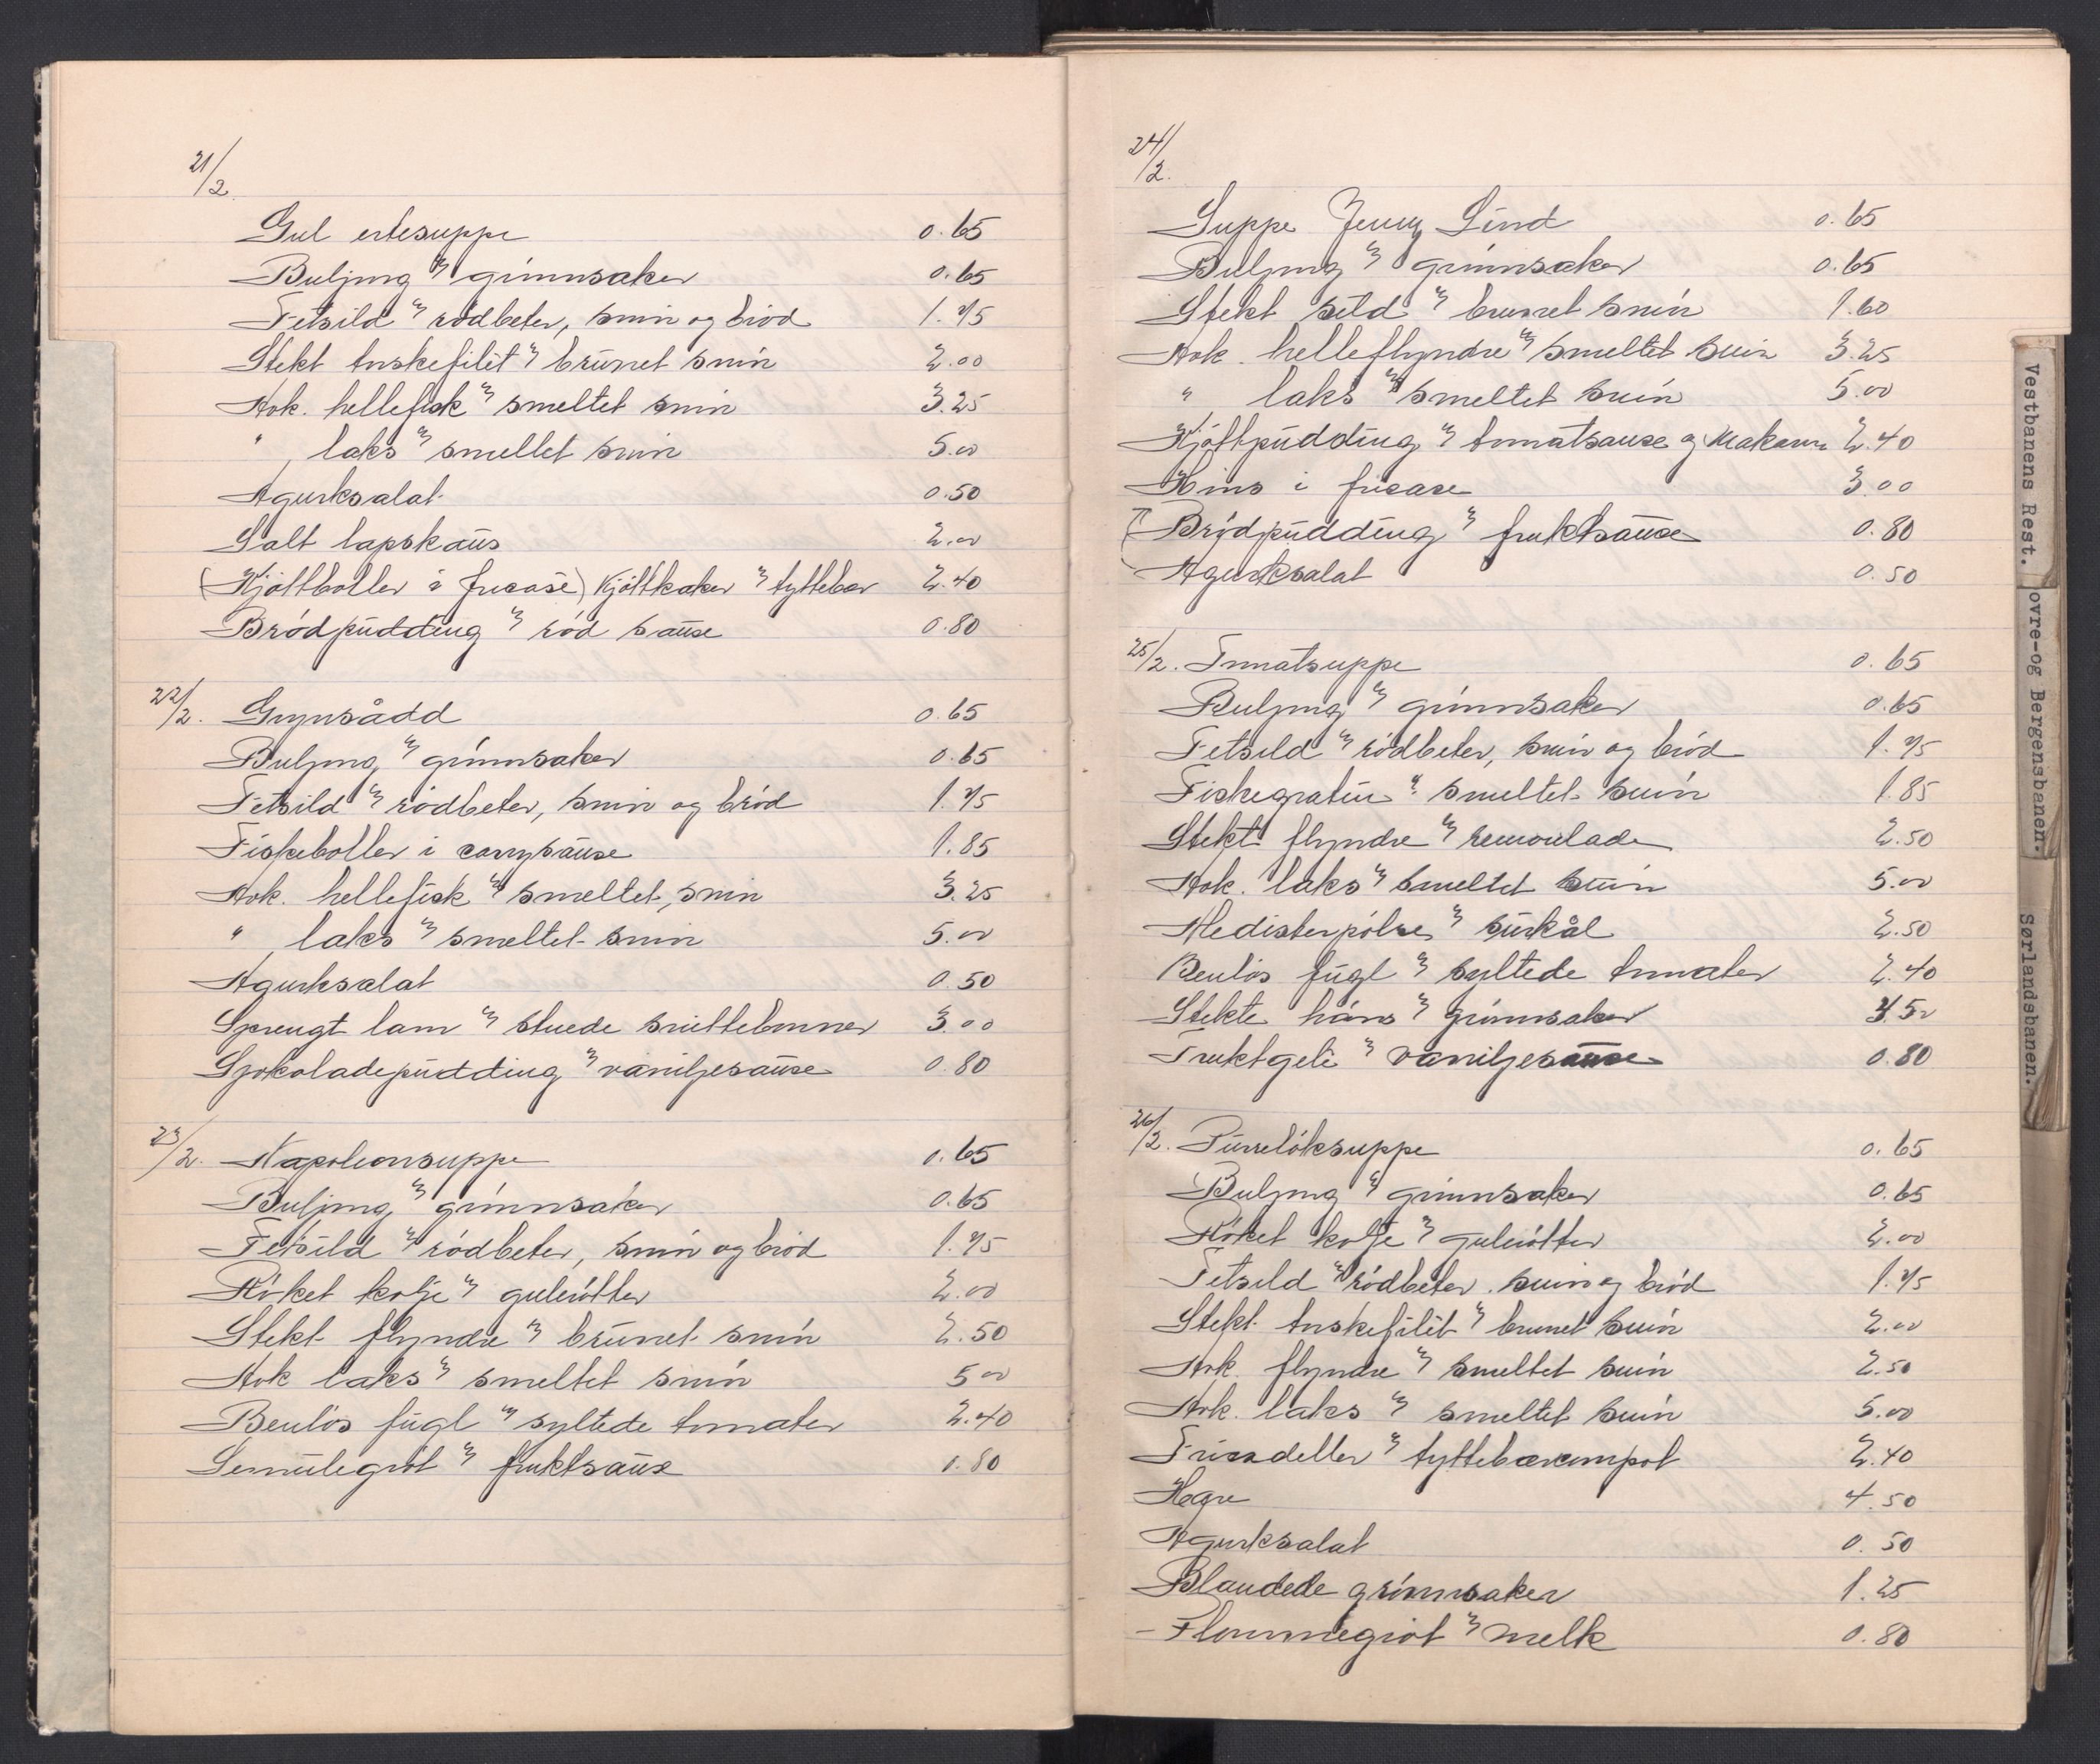 21/2
Gul ertesuppe 0.65
Buljong m grønnsaker 0.65
Fetsild m rødbeter, smør og brød 1.75
Stekt torskefilèt m brunet smør 2.00
Kok. hellefisk m smeltet smør 3.25
" laks m smeltet smør 5.00
Agurksalat 0.50
Salt lapskaus 2.00
(Kjøttboller i fricasè) Kjøttkaker m tyttebær 2.40
Brødpudding m rød sause 0.80
22/2. Grynsådd 0.65
Buljong m grønnsaker 0.65
Fetsild m rødbeter, smør og brød 1.75
Fiskeboller i carrysause 1.85
Kok. hellefisk m smeltet smør 3.25
" laks m smeltet smør 5.00
Agurksalat 0.50
Sprengt lam m stuede snittebønner 3.00
Sjokoladepudding m vaniljesause 0.80
23/2. Napoleonsuppe 0.65
Buljong m grønnsaker 0.65
Fetsild m rødbeter, smør og brød 1.75
Røket kolje m gulerøtter 2.00
Stekt flyndre m brunet smør 2.50
Kok laks m smeltet smør 5.00
Benløs fugl m syltede tomater 2.40
Semulegrøt m fruktsause 0.80
24/2.
Suppe Jenny Lind 0.65
Buljong m grønnsaker 0.65
Stekt sild m brunet smør 1.60
Kok. helleflyndre m smeltet smør 3.25
" laks m smeltet smør 5.00
Kjøttpudding m tomatsause og Makaroni 2.40
Høns i fricase 3.00
Brødpudding m fruktsause 0.80
Agurksalat 0.50
25/2. Tomatsuppe 0.65
Buljong m grønnsaker 0.65
Fetsild m rødbeter, smør og brød 1.75
Fiskegratin m smeltet smør 1.85
Stekt flyndre m remoulade 2.50
Kok. laks m smeltet smør 5.00
Medisterpølse m surkål 2.50
Benløs fugl m syltede tomater 2.40
Stekte høns m grønnsaker 4.50
Fruktgele m vaniljesause 0.80
26/2. Purreløksuppe 0.65
Buljong m grønnsaker 0.65
Røket kolje m gulerøtter 2.00
Fetsild m rødbeter. smør og brød 1.75
Stekt torskefilèt m brunet smør 2.00
Kok. flyndre m smeltet smør 2.50
Kok. laks m smeltet smør 5.00
Fricadeller m tyttebærcompot 2.40
Hare 4.50
Agurksalat 0.50
Blandede grønnsaker 1.25
- Flommegrøt m melk 0.80
Vestbanens Rest.
ovre-og Bergensbanen.
Sørlandsbanen.